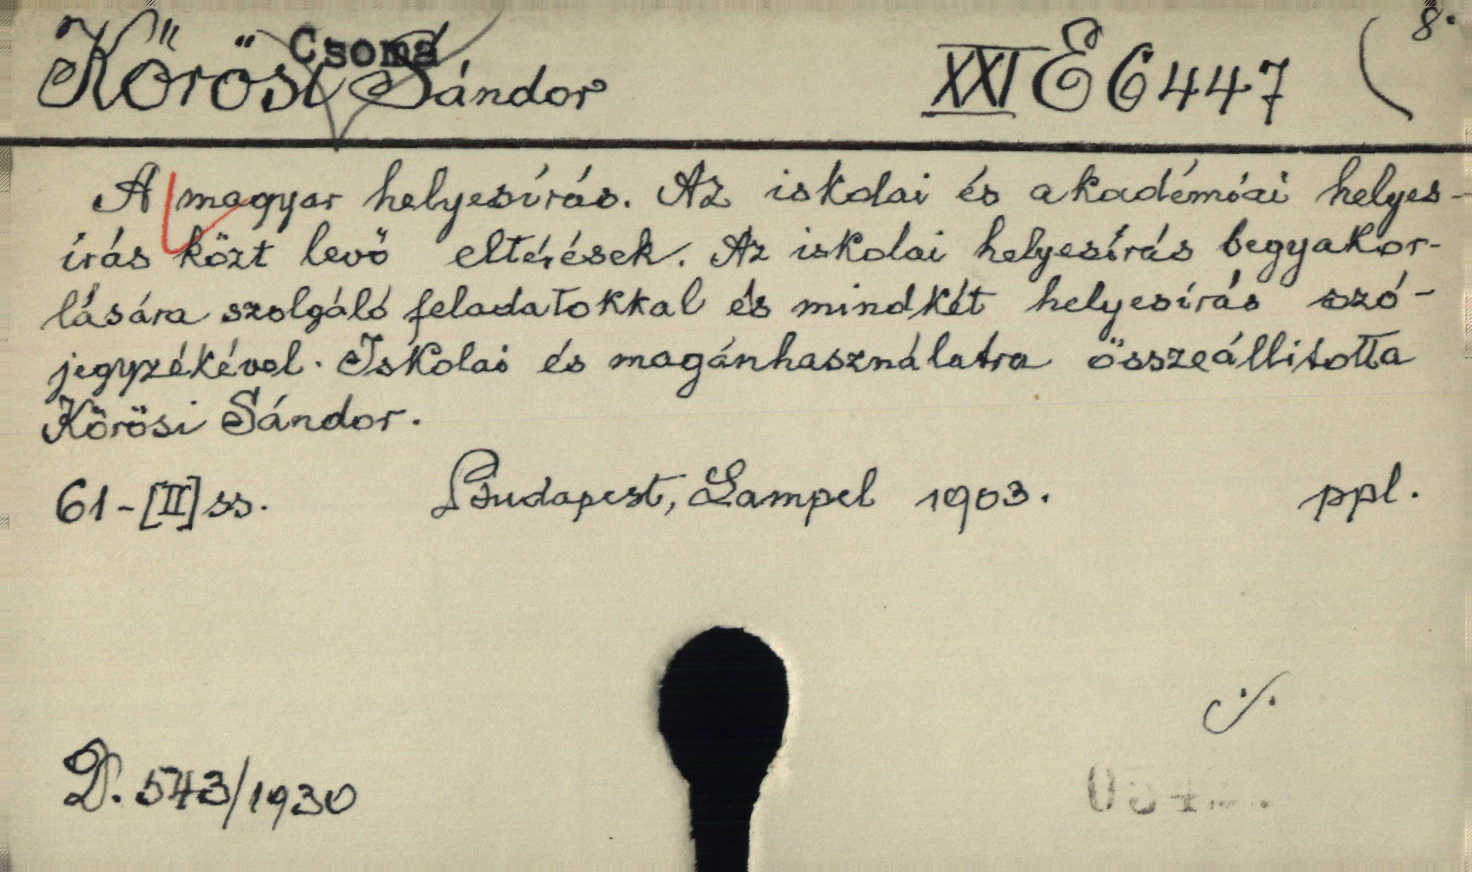 Kőrösi Csoma Sándor XXI E 6447 8.
A magyar helyesírás. Az iskolai és akadémiai helyes-
írás közt levő eltérések. Az iskolai helyesírás begyakor-
lására szolgáló feladatokkal és mindkét helyesírás szó-
jegyzékével. Iskolai és magánhasználatra összeállitotta
Kőrösi Sándor.
61-[II] ss. Budapest, Lampel 1903. ppl.
D. 543/1930